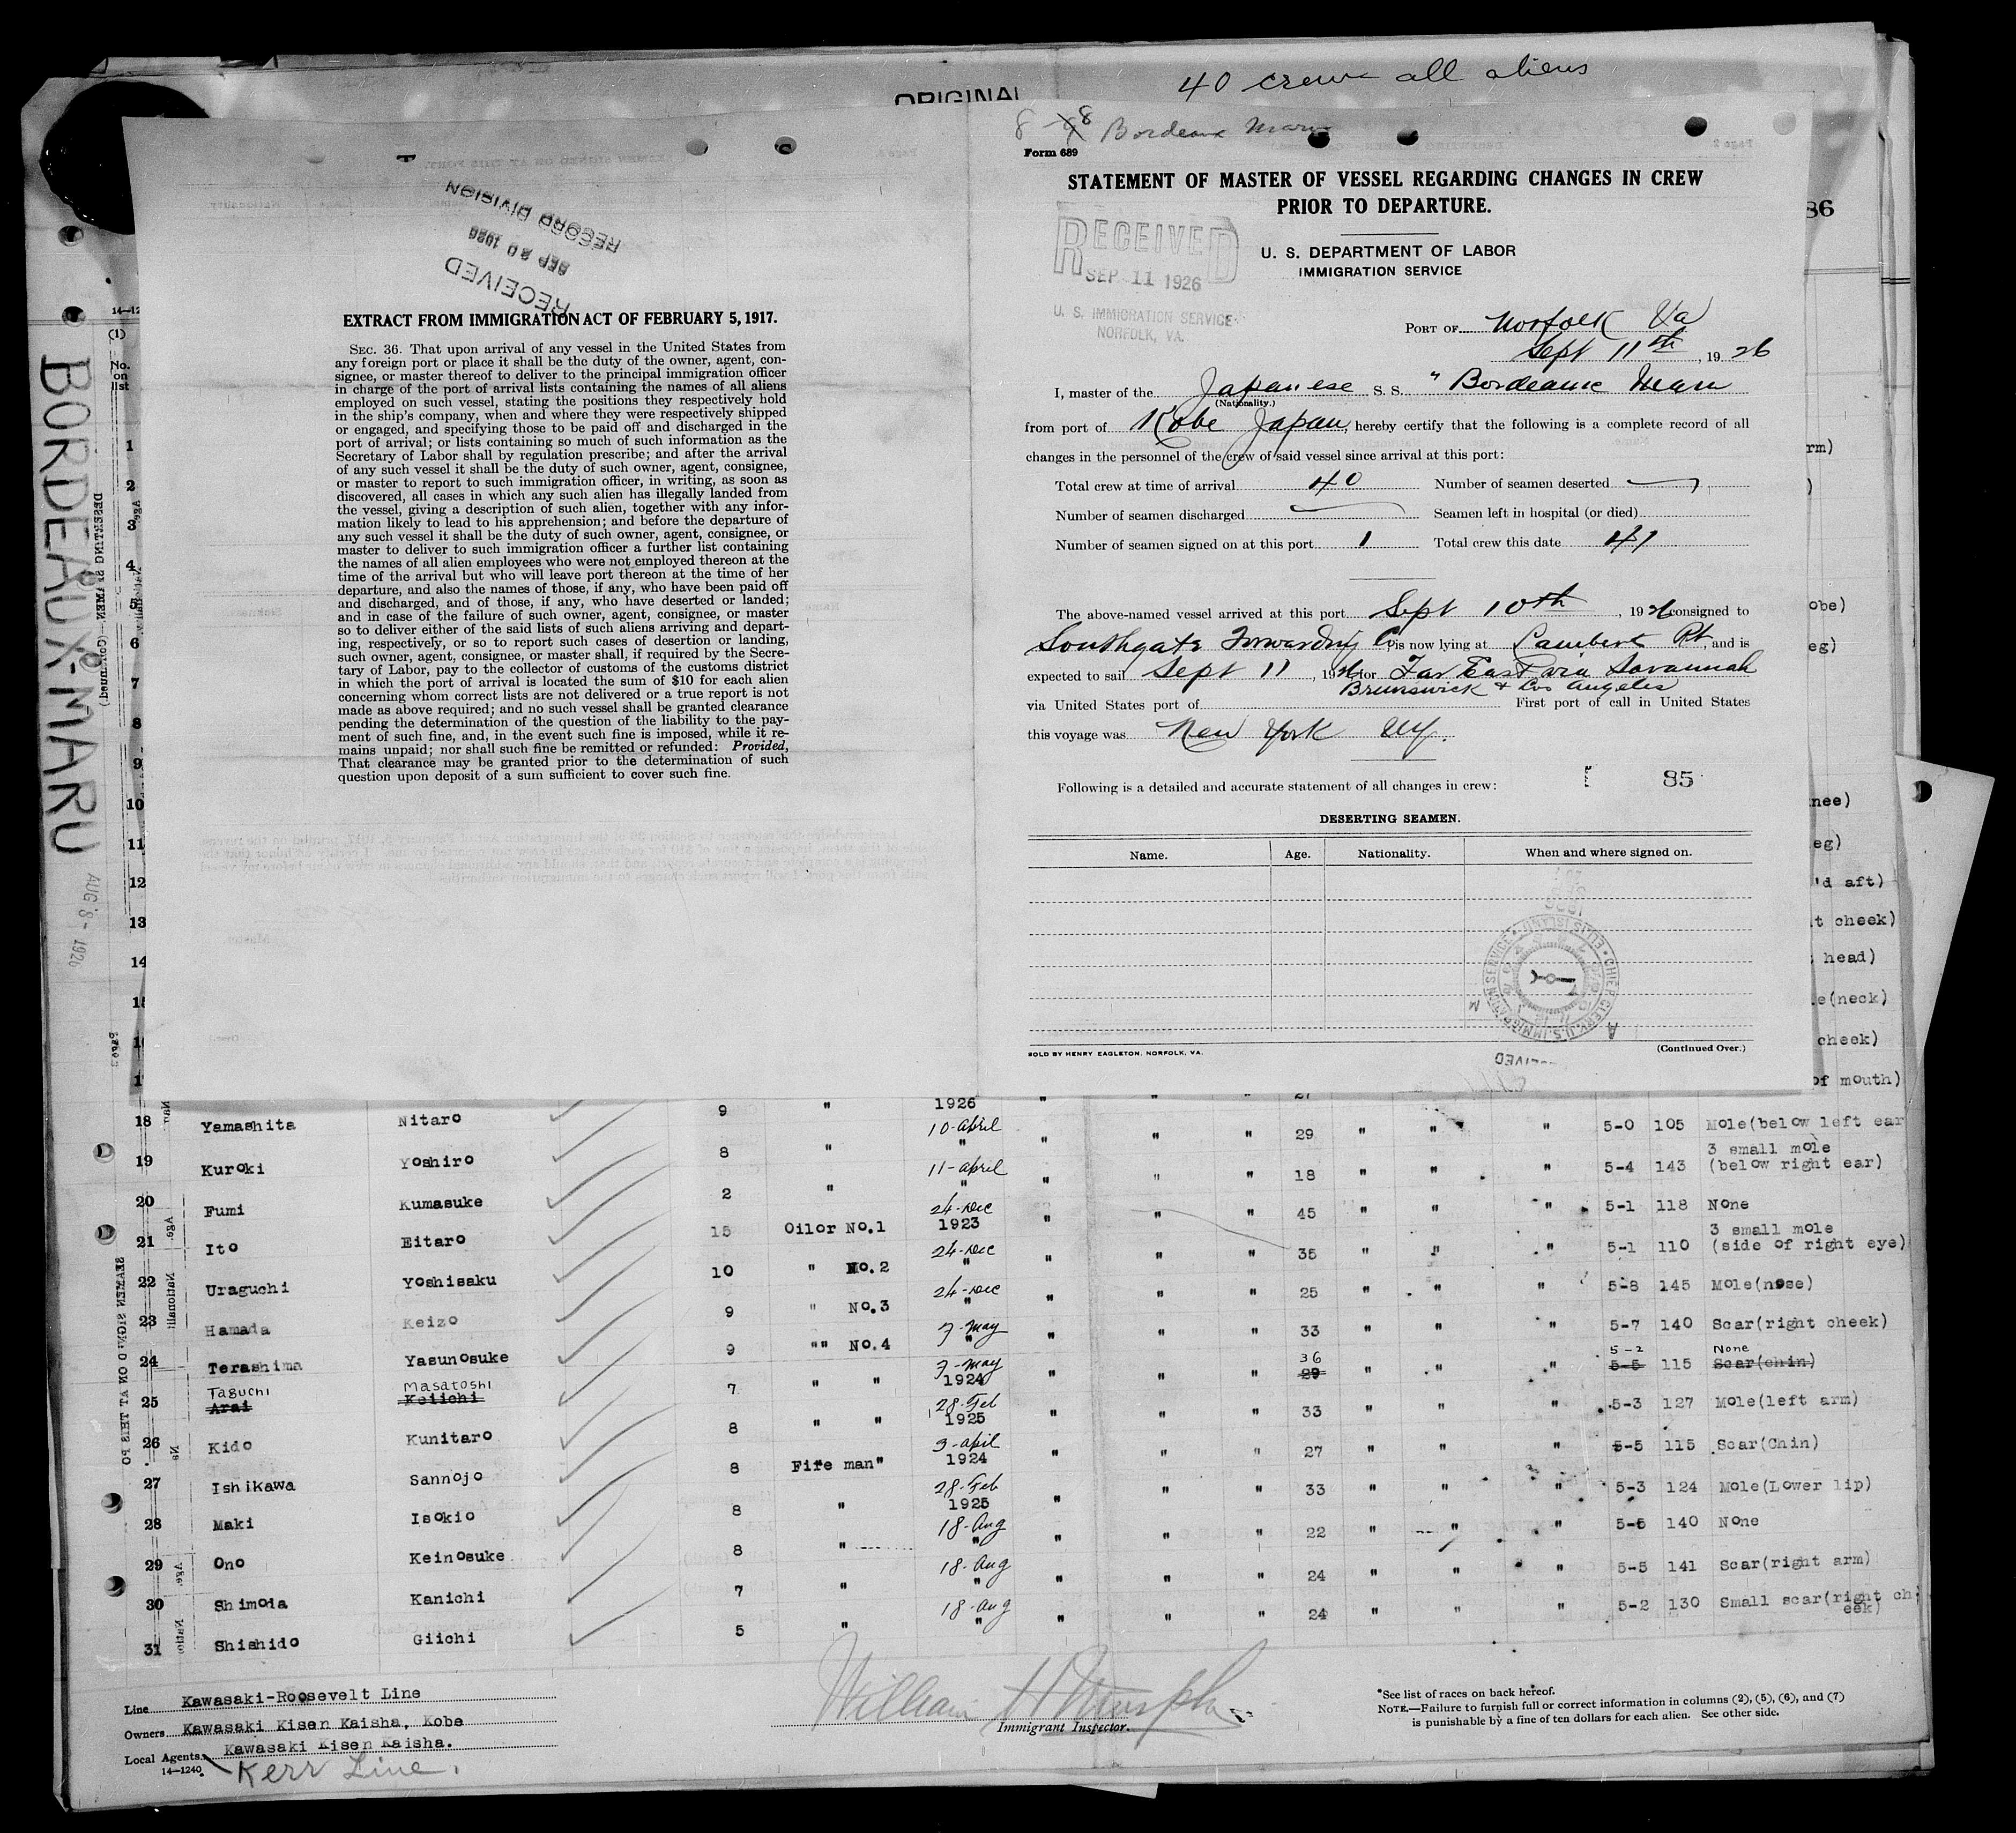 40 crew all aliens
ORIGINAL
8-8 Bordeaux Maru
Form 689
STATEMENT OF MASTER OF VESSEL REGARDING CHANGES IN CREW
PRIOR TO DEPARTURE.
U. S. DEPARTMENT OF LABOR
IMMIGRATION SERVICE
RECEIVED
SEP 11 1926
U. S. IMMIGRATION SERVICE
NORFOLK, VA.
PORT OF Norfolk Va
Sept 11th, 1926
I, master of the Japanese S. S. "Bordeaux Maru
(Nationality.)
from port of Kobe Japan, hereby certify that the following is a complete record of all
changes in the personnel of the crew of said vessel since arrival at this port:
Total crew at time of arrival 40 Number of seamen deserted
Number of seamen discharged Seamen left in hospital (or died)
Number of seamen signed on at this port 1 Total crew this date 41
The above-named vessel arrived at this port Sept 10th, 1926 consigned to
Southgate Forwarding Co is now lying at Lambert Pt, and is
expected to sail Sept 11, 1926 for Far East via Savannah
Brunswick & Los Angeles
via United States port of First port of call in United States
this voyage was New York NY.
Following is a detailed and accurate statement of all changes in crew:
85
DESERTING SEAMEN.
Name. Age. Nationality. When and where signed on.
SOLD BY HENRY EAGLETON, NORFOLK, VA.
(Continued Over.)
CHIEF CLERK, U.S. IMMIGRATION SERVICE ELLIS ISLAND
RECEIVED
SEP 20 1926
RECORD DIVISION
EXTRACT FROM IMMIGRATION ACT OF FEBRUARY 5, 1917.
SEC. 36. That upon arrival of any vessel in the United States from
any foreign port or place it shall be the duty of the owner, agent, con-
signee, or master thereof to deliver to the principal immigration officer
in charge of the port of arrival lists containing the names of all aliens
employed on such vessel, stating the positions they respectively hold
in the ship's company, when and where they were respectively shipped
or engaged, and specifying those to be paid off and discharged in the
port of arrival; or lists containing so much of such information as the
Secretary of Labor shall by regulation prescribe; and after the arrival
of any such vessel it shall be the duty of such owner, agent, consignee,
or master to report to such immigration officer, in writing, as soon as
discovered, all cases in which any such alien has illegally landed from
the vessel, giving a description of such alien, together with any infor-
mation likely to lead to his apprehension; and before the departure of
any such vessel it shall be the duty of such owner, agent, consignee, or
master to deliver to such immigration officer a further list containing
the names of all alien employees who were not employed thereon at the
time of the arrival but who will leave port thereon at the time of her
departure, and also the names of those, if any, who have been paid off
and discharged, and of those, if any, who have deserted or landed;
and in case of the failure of such owner, agent, consignee, or master
so to deliver either of the said lists of such aliens arriving and depart-
ing, respectively, or so to report such cases of desertion or landing,
such owner, agent, consignee, or master shall, if required by the Secre-
tary of Labor, pay to the collector of customs of the customs district
in which the port of arrival is located the sum of $10 for each alien
concerning whom correct lists are not delivered or a true report is not
made as above required; and no such vessel shall be granted clearance
pending the determination of the question of the liability to the pay-
ment of such fine, and, in the event such fine is imposed, while it re-
mains unpaid; nor shall such fine be remitted or refunded: Provided,
That clearance may be granted prior to the determination of such
question upon deposit of a sum sufficient to cover such fine.
BORDEAUX-MARU
AUG 8 - 1926
14-12
(1)
No.
on
list
1
2
3
4
5
6
7
8
9
10
11
12
13
14
86
rm)
)
obe)
eg)
nee)
eg)
'd aft)
t cheek)
head)
e(neck)
cheek)
of mouth)
18 Yamashita Nitaro 9 " 1926 10-april " " " 29 " " " 5-0 105 Mole(below left ear
19 Kuroki Yoshiro 8 " " 11-april " " " 18 " " " 5-4 143 3 small mole (below right ear)
20 Fumi Kumasuke 2 " " 24-Dec " " " 45 " " " 5-1 118 None
21 Ito Eitaro 15 Oilor No.1 1923 24-Dec " " " 35 " " " 5-1 110 3 small mole (side of right eye)
22 Uraguchi Yoshisaku 10 " No.2 " 24-Dec " " " 25 " " " 5-8 145 Mole(nose)
23 Hamada Keizo 9 " No.3 " 7-May " " " 33 " " " 5-7 140 Scar(right cheek)
24 Terashima Yasunosuke 9 "" No.4 " 7-May " " " 36 29 " " " 5-2 5-5 115 None Scar(chin)
25 Taguchi Arai Masatoshi Keiichi 7 " " 1924 28-Feb " " " 33 " " " 5-3 127 Mole(left arm)
26 Kido Kunitaro 8 " " 1925 3-april " " " 27 " " " 5-5 115 Scar(Chin)
27 Ishikawa Sannojo 8 Fire man" 1924 28-Feb " " " 33 " " " 5-3 124 Mole(Lower lip)
28 Maki Isokio 8 " 1925 18-Aug " " " 22 " " " 5-5 140 None
29 Ono Keinosuke 8 " " 18-Aug " " " 24 " " " 5-5 141 Scar(right arm)
30 Shimoia Kanichi 7 " " 18-Aug " " " 24 " " " 5-2 130 Small scar(right cheek)
31 Shishido Giichi 5 " "
Line Kawasaki-Roosevelt Line
Owners Kawasaki Kisen Kaisha, Kobe
Local Agents Kawasaki Kisen Kaisha.
14-1240
Kerr Line.
William H Murphy
Immigrant Inspector.
*See list of races on back hereof.
NOTE.—Failure to furnish full or correct information in columns (2), (5), (6), and (7)
is punishable by a fine of ten dollars for each alien. See other side.